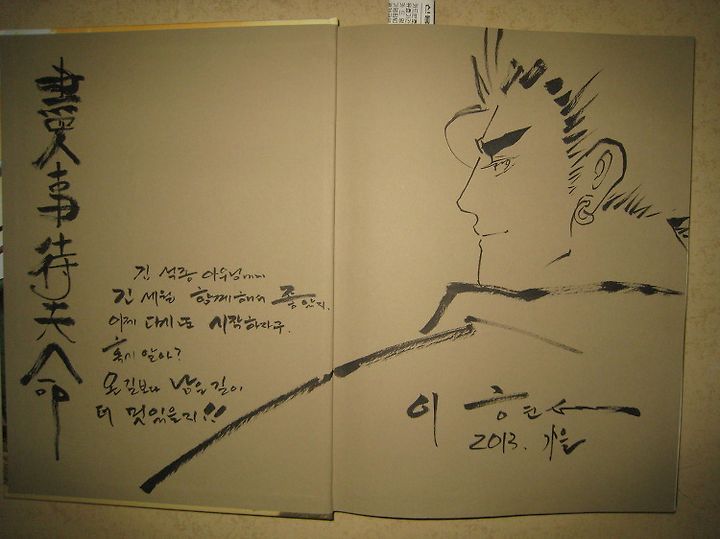 盡人事待天命
김 아우님께
긴 세월 함께해서 좋았지.
이제 다시 또 시작하자구.
혹시 알아?
온 길보다 남은 길이
더 멋있을지!!
이 현세
2013. 가을